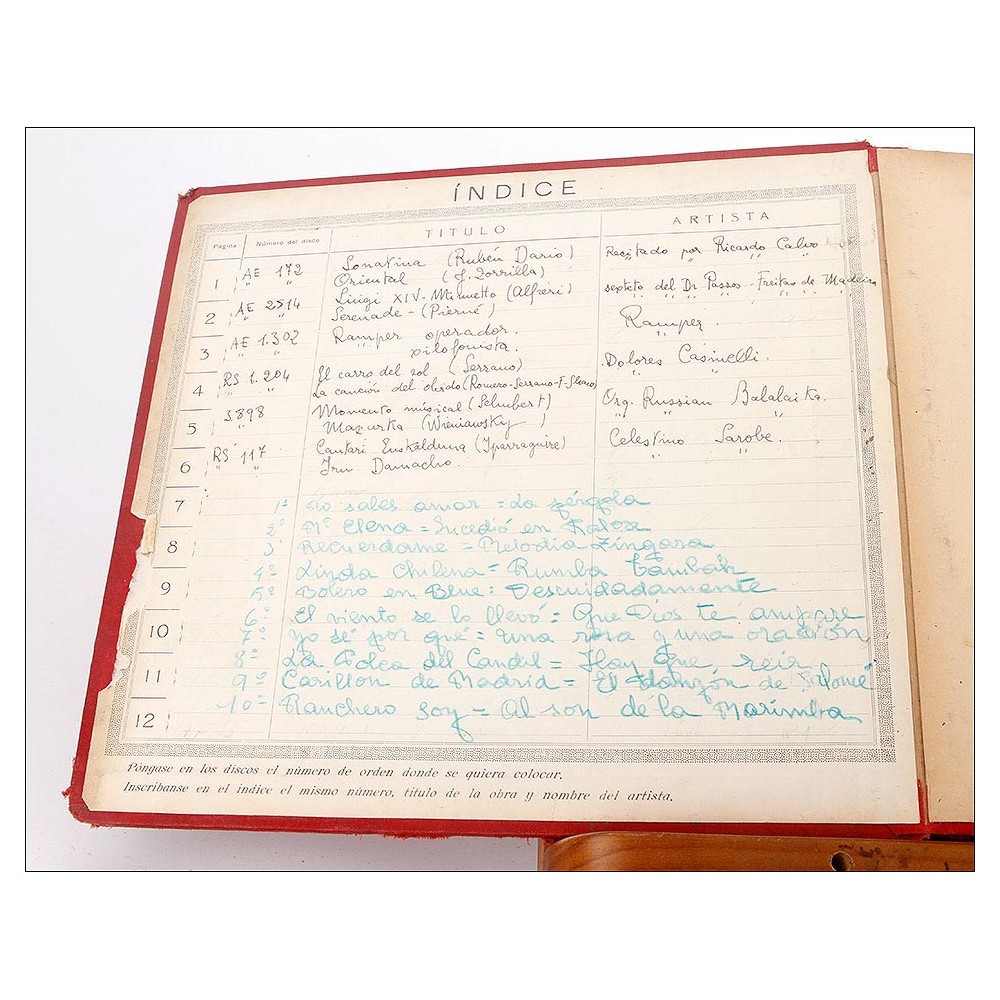 ÍNDICE
Página Número del disco TITULO ARTISTA
1 AE 172 Sonatina (Rubén Dario) Recitado por Ricardo Calvo
" " Oriental (J. Zorrilla) " "
2 AE 2514 Luigi XIV - Minuetto (Alfieri) septeto del Dr Passos - Freitas de Madeira
" " Serenade - (Pierné) " "
3 AE 1.302 Ramper operador. Ramper.
" " " xilofonista. "
4 RS 1.204 El carro del sol (Serrano) Dolores Casinelli.
" " La canción del olvido (Romero-Serrano-F-Shaw) " "
5 S.898 Momento músical (Schubert) Orq. Russian Balalaika.
" Mazurka (Wieniawsky) " "
6 RS 117 Cantari Euskalduna (Iparraguire) Celestino Sarobe.
" " Iru Damacho. " "
7 1º No sabes amar = La pérgola
2º Mª Elena = Sucedió en
8 3º Recuerdame = Melodia Zíngara
4º Linda Chilena = Rumba Tambah
9 5º Bolero en Blue = Descuidadamente
10 6º El viento se lo llevó = Que Dios te ampare
7º yo sé por qué = una rosa y una oración
11 8º La Polca del Candil = Hay que reir
9º Carillon de Madrid = El danzón de
12 10º Ranchero soy = Al son de la Marimba
Póngase en los discos el número de orden donde se quiera colocar.
Inscribanse en el indice el mismo número, titulo de la obra y nombre del artista.